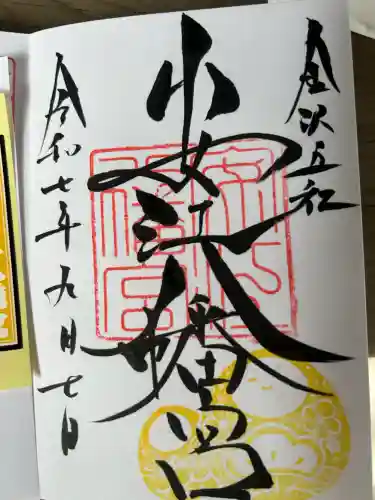 金沢五社
安江八幡宮
令和七年九月七日